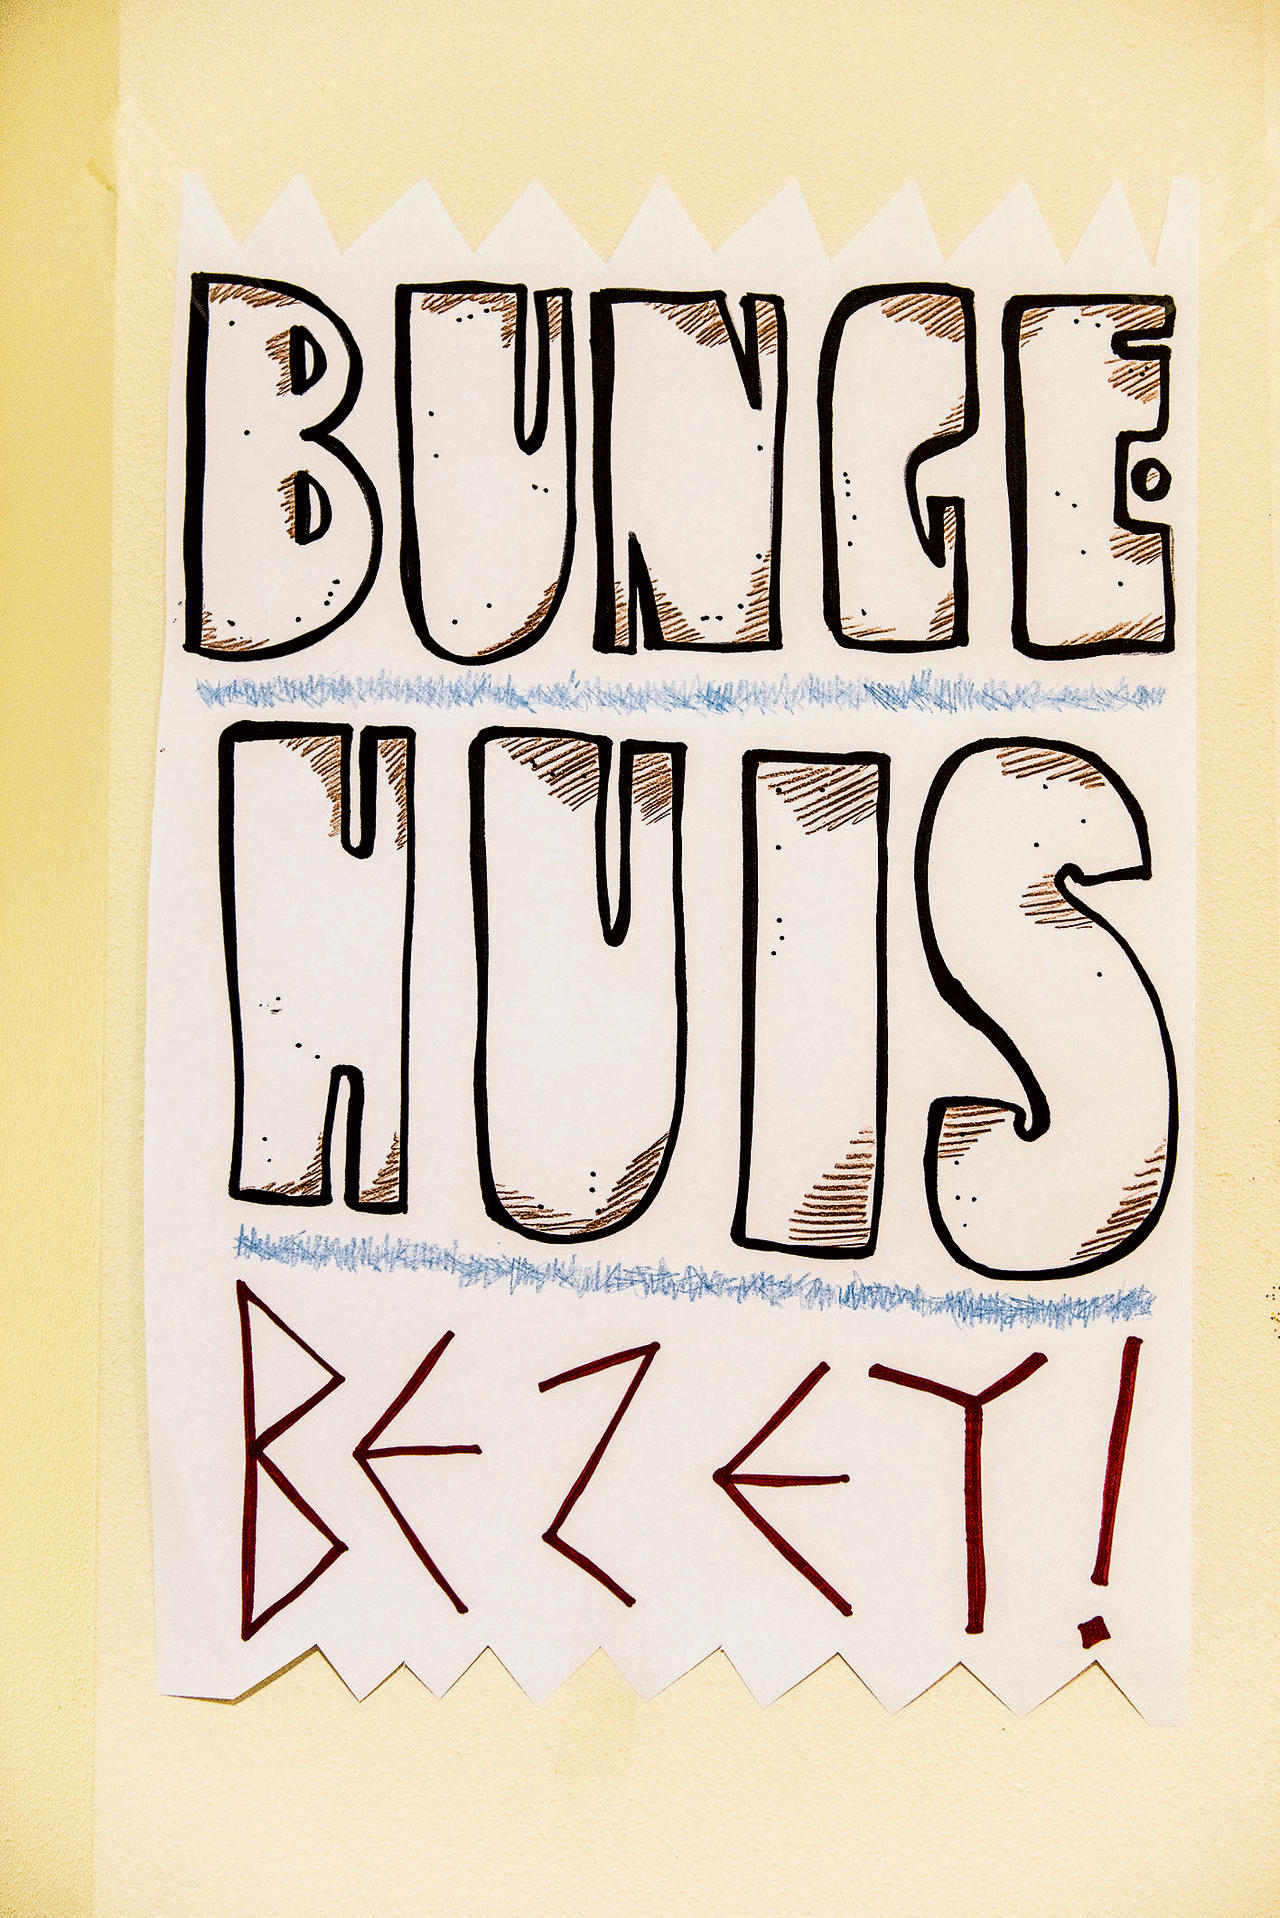 BUNGE
HUIS
BEZEY!